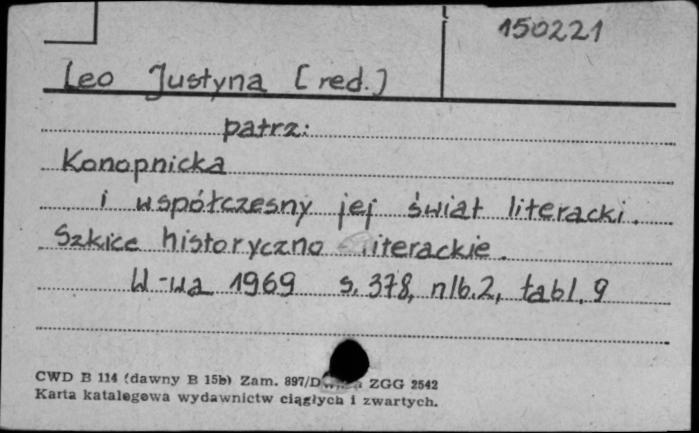 150221
Leo Justyna [red.]
patrz:
Konopnicka
i współczesny jej świat literacki.
Szkice historyczno literackie.
W-wa 1969 s. 378, nlb. 2, tabl. 9
CWD B 114 (dawny B 15b) Zam. 897/D ZGG 2542
Karta katalogowa wydawnictw ciągłych i zwartych.